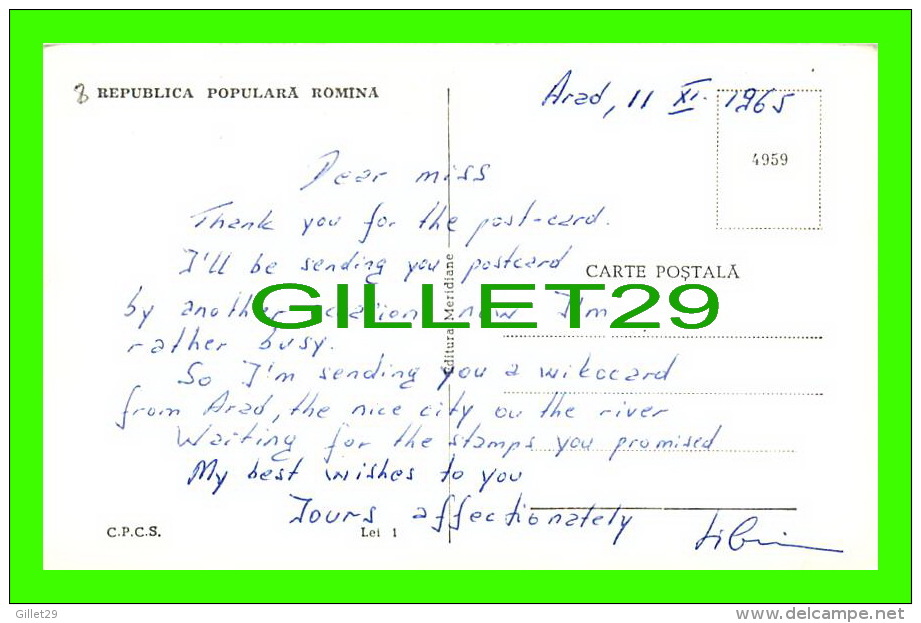 8 REPUBLICA POPULARĂ ROMÎNĂ
Arad, 11 XI. 1965
4959
Dear miss
Thank you for the post-card.
I'll be sending you postcard
CARTE POȘTALĂ
by another now I'm
GILLET29
rather busy.
Editura Meridiane
So I'm sending you a
from Arad, the nice city on the river
Waiting for the stamps you promised
My best wishes to you
Yours affectionately
C.P.C.S.
Lei 1
Gillet29
http://www.delcampe.net